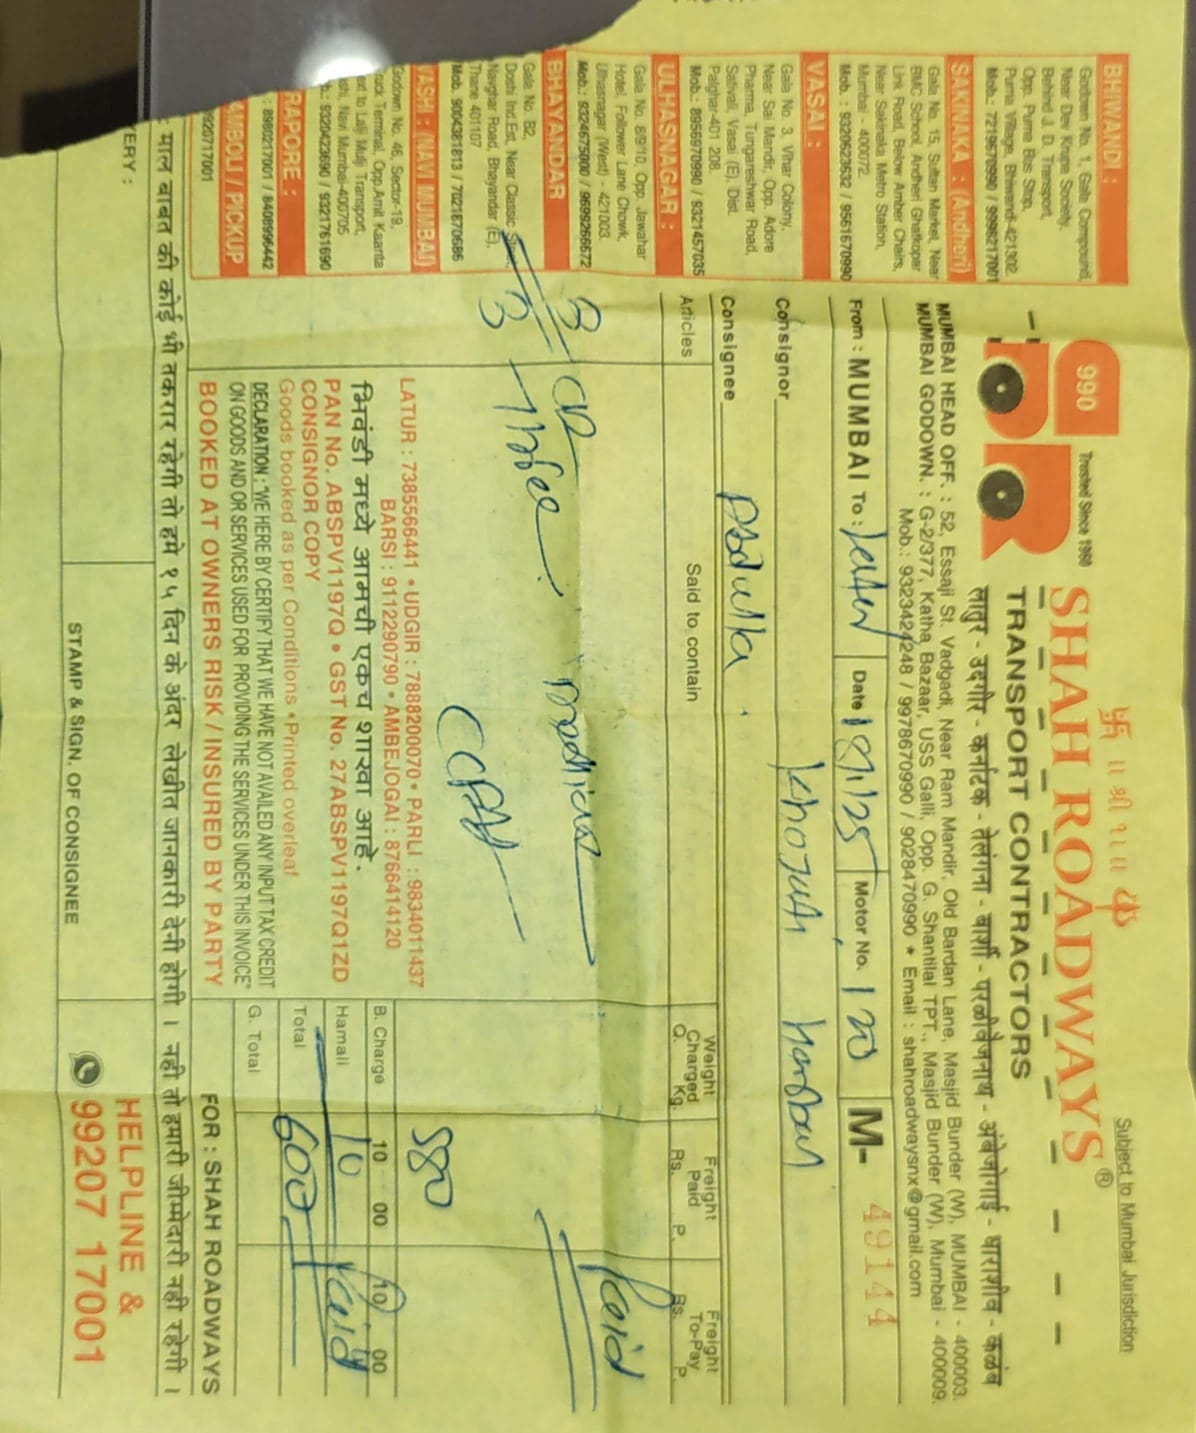 卐 ॥ श्री १ ॥ ॐ
Subject to Mumbai Jurisdiction
990
Trusted Since 1960
SHAH ROADWAYS®
TRANSPORT CONTRACTORS
लातुर - उदगीर - कर्नाटक - तेलंगना - बार्शी - परळीवैजनाथ - अंबेजोगाई - धाराशीव - कळंब
MUMBAI HEAD OFF. : 52, Essaji St. Vadgadi, Near Ram Mandir, Old Bardan Lane, Masjid Bunder (W), MUMBAI - 400003.
MUMBAI GODOWN. : G-2/377, Katha Bazaar, USS Galli, Opp. G. Shantilal TPT., Masjid Bunder (W), Mumbai - 400009.
Mob.: 9323424248 / 9978670990 / 9028470990 * Email : shahroadwaysnx@gmail.com
From : MUMBAI To : Latur Date 18/1/25 Motor No. 120 M- 49144
Consignor Khojati Harbar
Consignee Abdulla
Articles Said to contain Weight Charged Q. Kg. Freight Paid Rs. P. Freight To-Pay Rs. P.
3 CR
Paid
3 Three
580
LATUR : 7385566441 • UDGIR : 7888200070 • PARLI : 9834011437
BARSI : 9112290790 • AMBEJOGAI : 8766414120
भिवंडी मध्ये आमची एकच शाखा आहे.
PAN No. ABSPV1197Q • GST No. 27ABSPV1197Q1ZD
CONSIGNOR COPY
Goods booked as per Conditions •Printed overleaf
DECLARATION : "WE HERE BY CERTIFY THAT WE HAVE NOT AVAILED ANY INPUT TAX CREDIT
ON GOODS AND OR SERVICES USED FOR PROVIDING THE SERVICES UNDER THIS INVOICE"
BOOKED AT OWNERS RISK / INSURED BY PARTY
B. Charge 10 00 10 00
Hamali 10 Paid
Total 600
G. Total
FOR : SHAH ROADWAYS
BHIWANDI :
Godown No. 1, Gala Compound,
Near Dev Krupa Society,
Behind J. D. Transport,
Opp. Purna Bus Stop,
Purna Village, Bhiwandi-421302.
Mob.: 7219670990 / 9996217001
SAKINAKA : (Andheri)
Gala No. 15, Sultan Market, Near
BMC School, Andheri Ghatkopar
Link Road, Below Amber Chairs,
Near Sakinaka Metro Station,
Mumbai - 400072.
Mob. : 9320623632 / 9561670990
VASAI :
Gala No. 3, Vihar Colony,
Near Sai Mandir, Opp. Adore
Pharma, Tungareshwar Road,
Sativali, Vasai (E), Dist.
Palghar-401 208.
Mob.: 8956970990 / 9321457035
ULHASNAGAR :
Gala No. 8/9/10, Opp. Jawahar
Hotel, Follower Lane Chowk,
Ulhasnagar (West) - 421003
Mob.: 9324675000 / 9699266672
BHAYANDAR
Gala No. B2,
Doshi Ind.Est, Near Classic
Navghar Road, Bhayandar (E),
Thane 401107
Mob. 9004381813 / 7021870686
VASHI : (NAVI MUMBAI)
Godown No. 46, Sector-19,
Truck Terminal, Opp.Amit Kaanta
Next to Lalji Mulji Transport,
Vashi, Navi Mumbai-400705
Mob.: 9320423690 / 9321761690
RAPORE :
: 8980217001 / 8408996442
AMBOLI / PICKUP
9920717001
माल बाबत की कोई भी तकरार रहेगी तो हमे १५ दिन के अंदर लेखीत जानकारी देनी होगी । नही तो हमारी जीम्मेदारी नही रहेगी ।
ERY :
STAMP & SIGN. OF CONSIGNEE
HELPLINE &
99207 17001